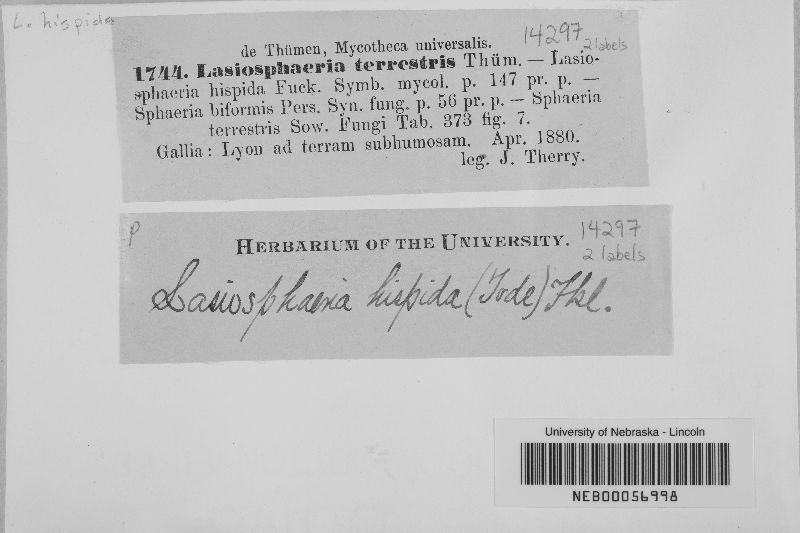 L. hispida
14297
2 labels
de Thümen, Mycotheca universalis.
1744. Lasiosphaeria terrestris Thüm. — Lasio-
sphaeria hispida Fuck. Symb. mycol. p. 147 pr. p. —
Sphaeria biformis Pers. Syn. fung. p. 56 pr. p. — Sphaeria
terrestris Sow. Fungi Tab. 373 fig. 7.
Gallia: Lyon ad terram subhumosam. Apr. 1880.
leg. J. Therry.
P
HERBARIUM OF THE UNIVERSITY.
14297
2 labels
Lasiosphaeria hispida (Tode) Fkl.
University of Nebraska - Lincoln
NEB00056998